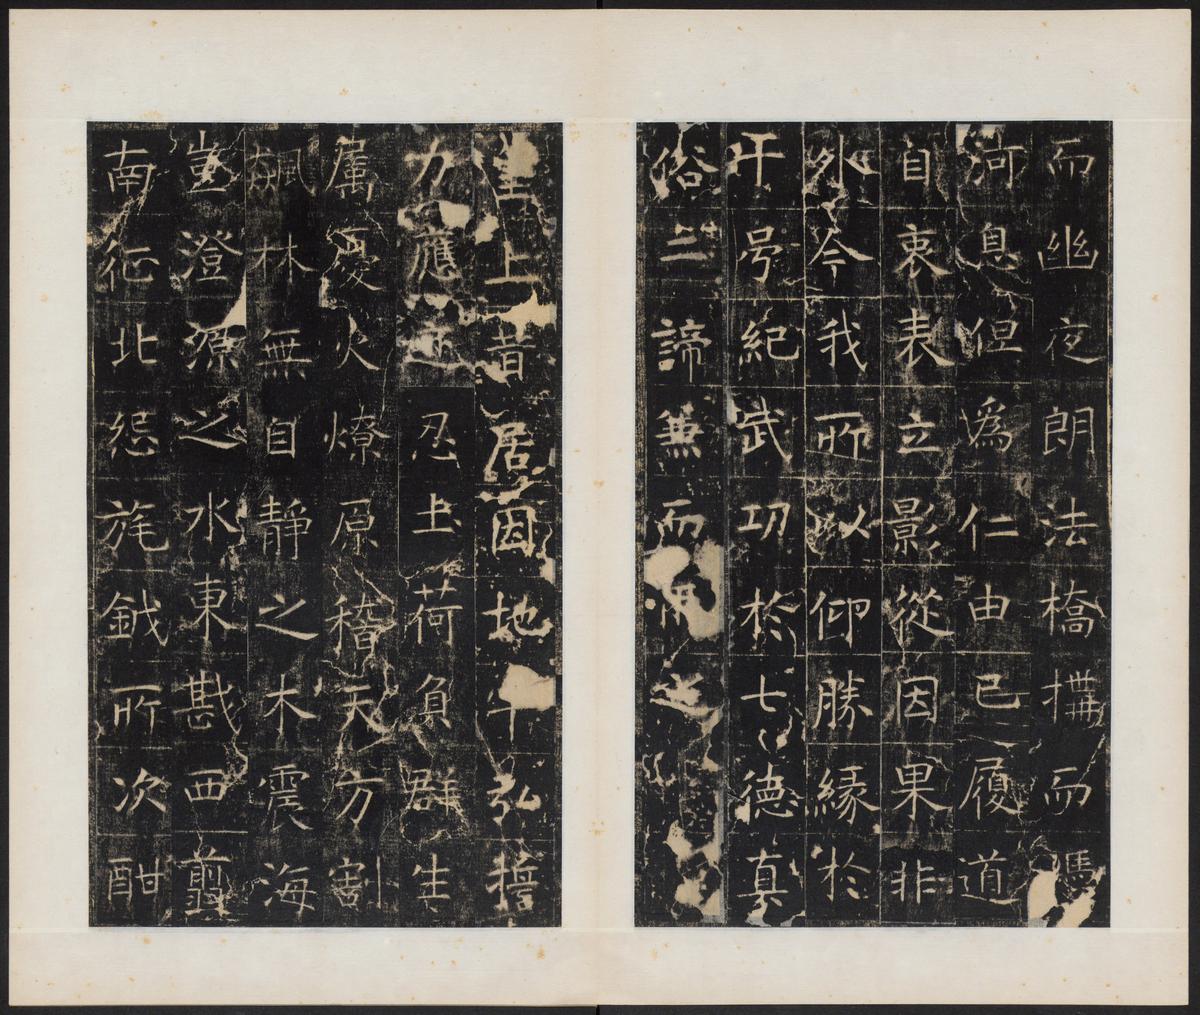 而幽夜朗法橋搆而馮
河息但為仁由已履道
自衷表立影從因果非
外今我所以仰勝緣於
干号紀武功於七德真
俗二諦兼而
皇上昔居因地弘誓
力應迹忍土荷負群生
屬憂火燎原稽天方割
飆林無自靜之木震海
豈澄源之水東戡西翦
南征北怨旄鉞所次酣